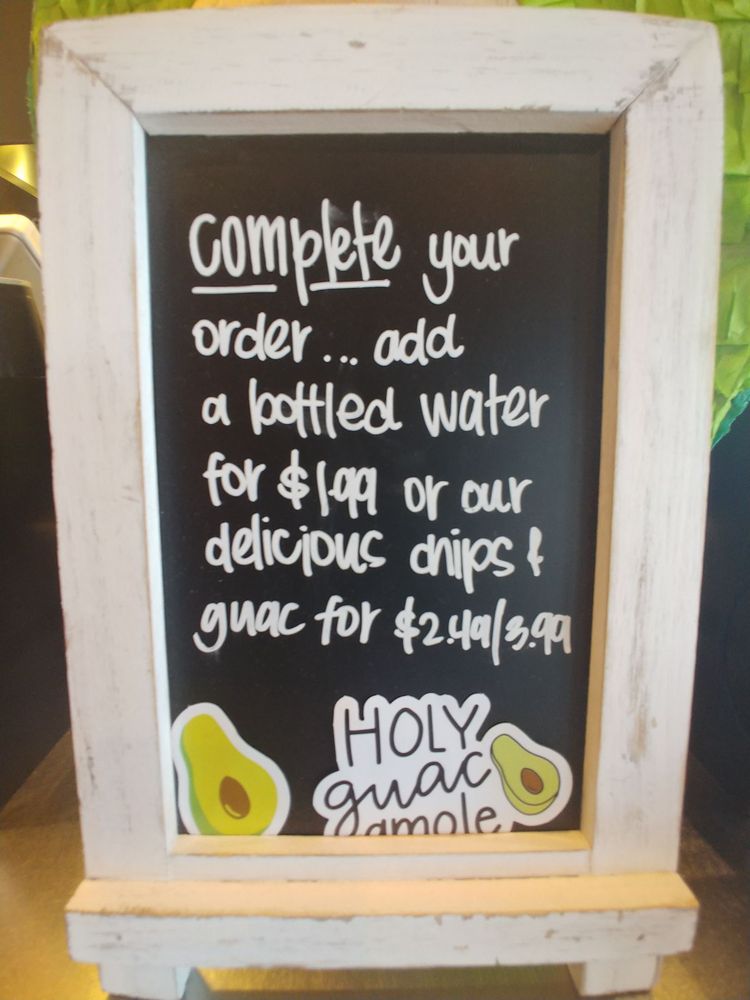 complete your
order... add
a bottled water
for $1.99 or our
delicious chips &
guac for $2.49/3.99
HOLY
guac
amole